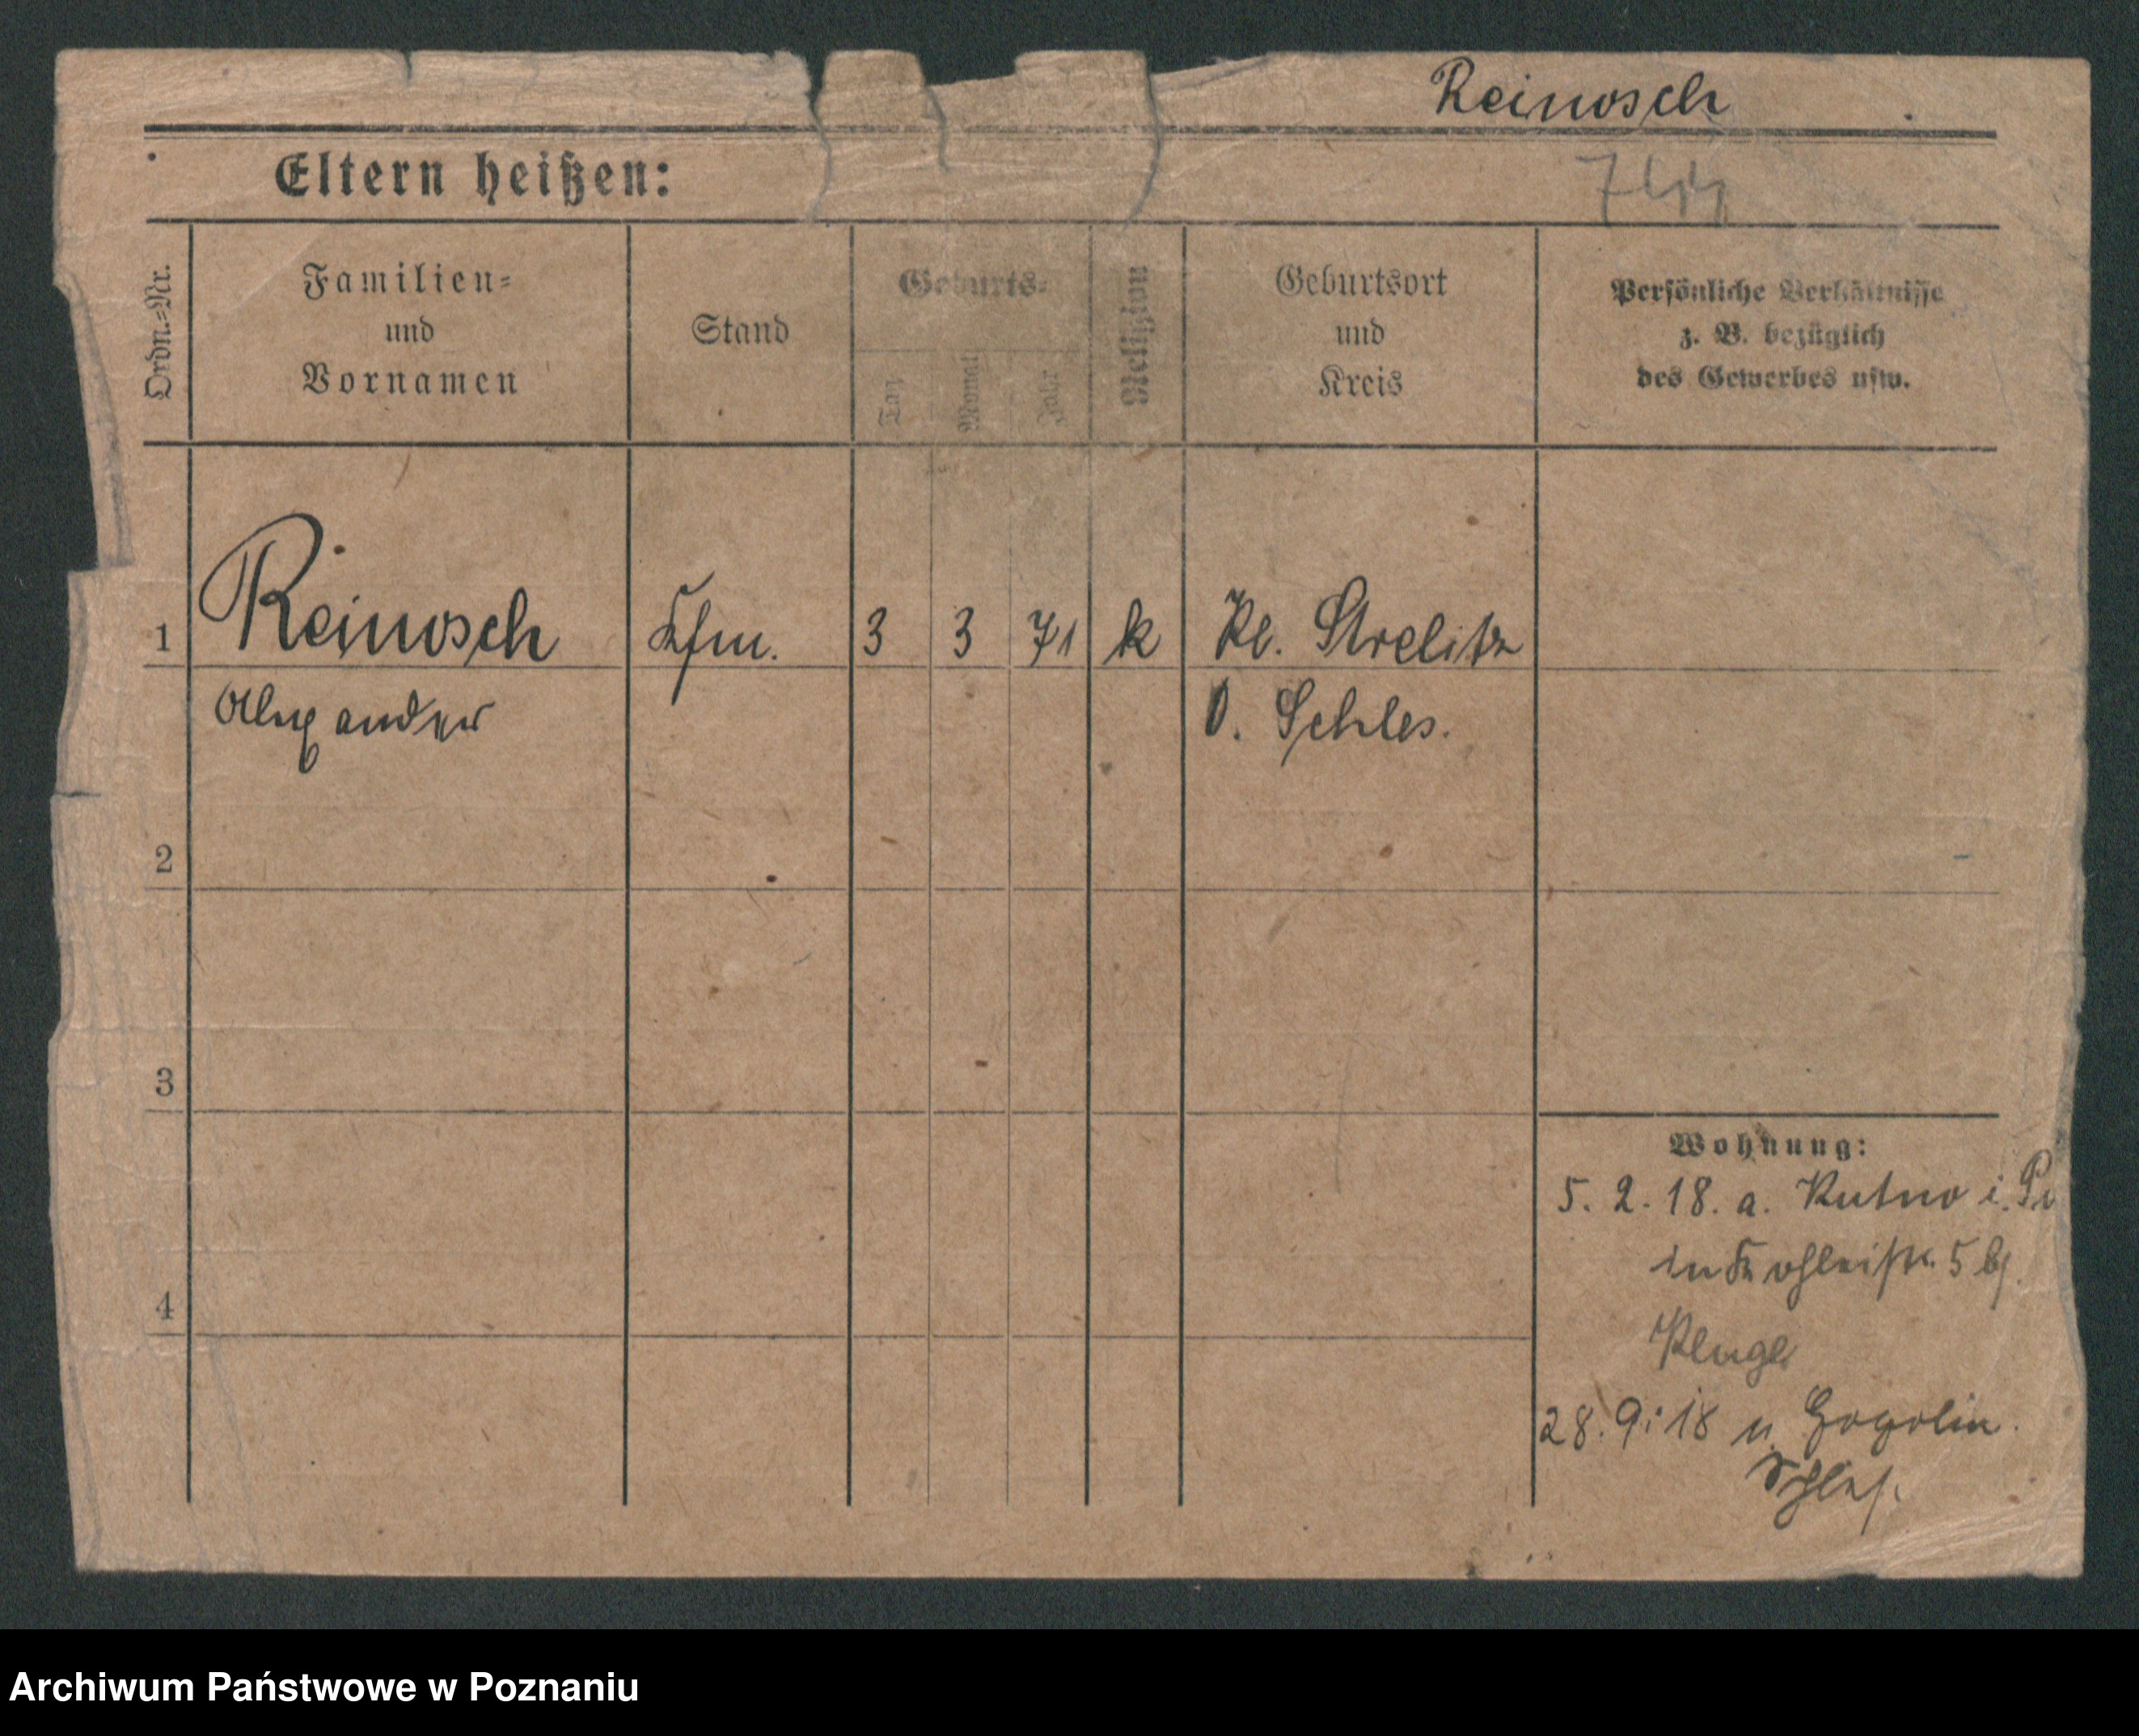 Reinosch
Eltern heißen:
Ordn.-Nr.
Familien-
und
Vornamen
Stand
Geburts-
Tag
Monat
Jahr
Religion
Geburtsort
und
Kreis
Persönliche Verhältnisse
z. B. bezüglich
des Gewerbes usw.
1 Reinosch Kfm. 3 3 71 k Kl. Strelitz
Alexander O. Schles.
2
3
4
Wohnung:
5. 2. 18. a. Kutno i.
5 b/
Kluge
28. 9. 18 n. Gogolin.
Schles.
Archiwum Państwowe w Poznaniu